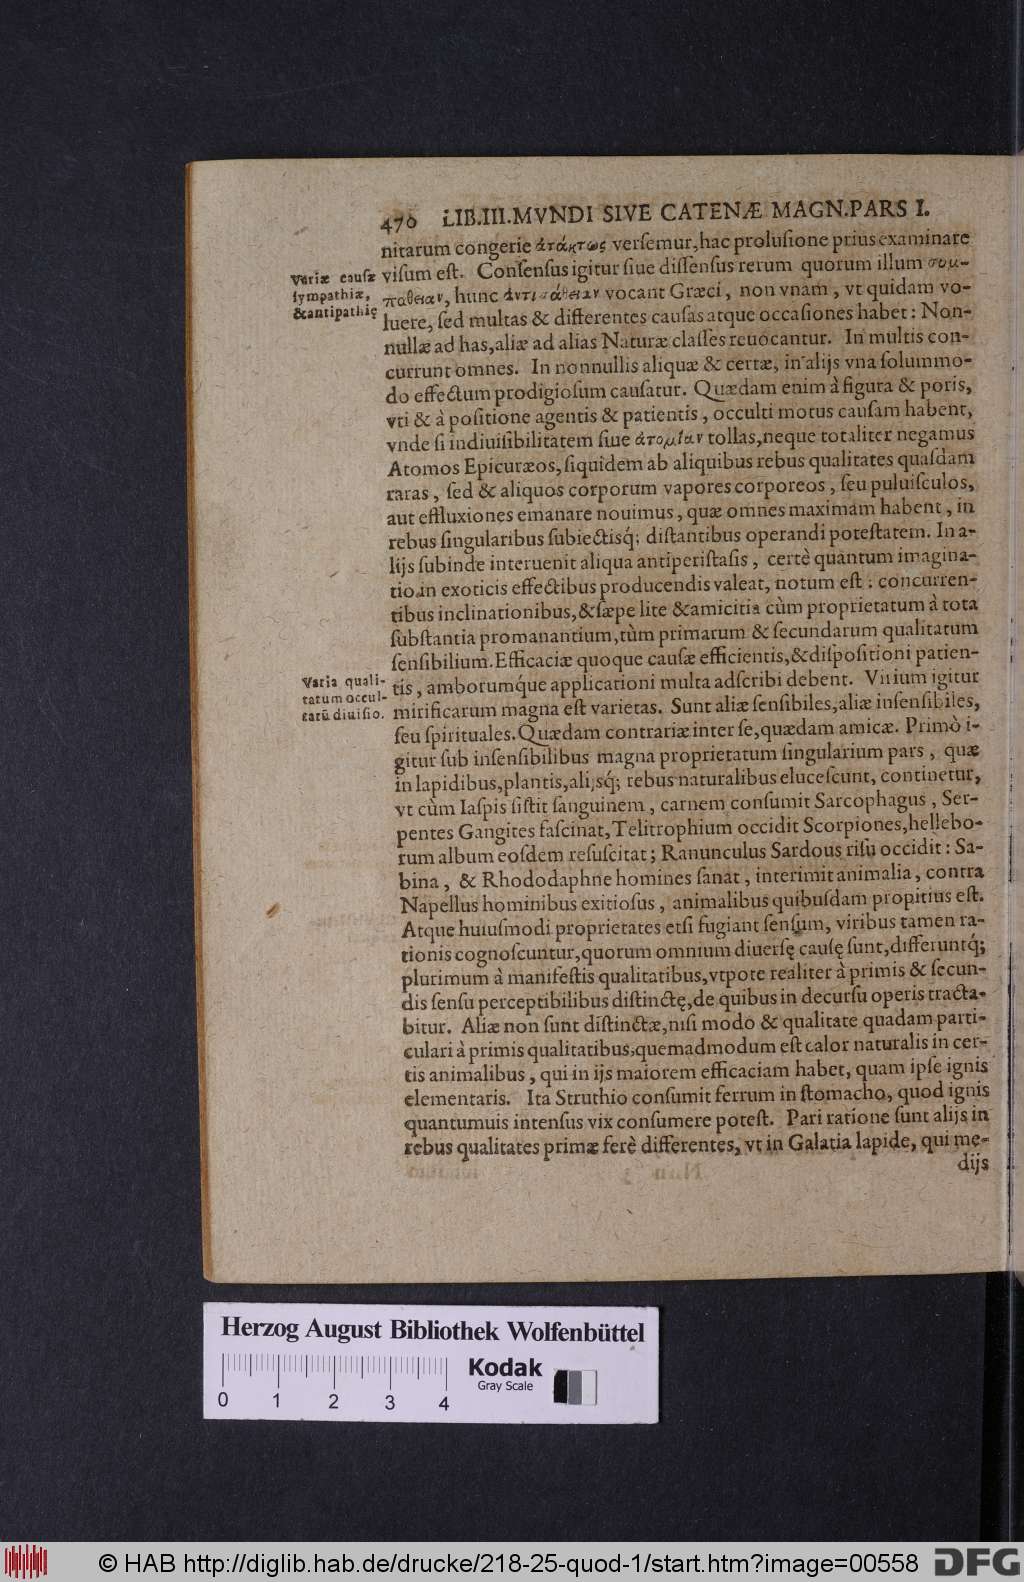 470 LIB.III.MVNDI SIVE CATENÆ MAGN.PARS I.
nitarum congerie ἀτάκτως verſemur,hac proluſione prius examinare
viſum eſt. Conſenſus igitur ſiue diſſenſus rerum quorum illum συμ-
παθειαν, hunc ἀντιπάθειαν vocant Græci, non vnam, vt quidam vo-
luere, ſed multas & differentes cauſas atque occaſiones habet: Non-
nullæ ad has,aliæ ad alias Naturæ claſſes reuocantur. In multis con-
currunt omnes. In nonnullis aliquæ & certæ, in alijs vna ſolummo-
do effectum prodigioſum cauſatur. Quædam enim à figura & poris,
vti & à poſitione agentis & patientis, occulti motus cauſam habent,
vnde ſi indiuiſibilitatem ſiue ἀτομίαν tollas,neque totaliter negamus
Atomos Epicuræos, ſiquidem ab aliquibus rebus qualitates quaſdam
raras, ſed & aliquos corporum vapores corporeos, ſeu puluiſculos,
aut effluxiones emanare nouimus, quæ omnes maximam habent, in
rebus ſingularibus ſubiectisq́; diſtantibus operandi poteſtatem. In a-
lijs ſubinde interuenit aliqua antiperiſtaſis, certè quantum imagina-
tio in exoticis effectibus producendis valeat, notum eſt: concurren-
tibus inclinationibus,& ſæpe lite & amicitia cùm proprietatum à tota
ſubſtantia promanantium,tùm primarum & ſecundarum qualitatum
ſenſibilium. Efficaciæ quoque cauſæ efficientis,& diſpoſitioni patien-
tis, amborumq́ue applicationi multa adſcribi debent. Virium igitur
mirificarum magna eſt varietas. Sunt aliæ ſenſibiles,aliæ inſenſibiles,
ſeu ſpirituales. Quædam contrariæ inter ſe,quædam amicæ. Primò i-
gitur ſub inſenſibilibus magna proprietatum ſingularium pars, quæ
in lapidibus,plantis,alijsq́; rebus naturalibus eluceſcunt, continetur,
vt cùm Iaſpis ſiſtit ſanguinem, carnem conſumit Sarcophagus, Ser-
pentes Gangites faſcinat,Telitrophium occidit Scorpiones,hellebo-
rum album eoſdem reſuſcitat; Ranunculus Sardous riſu occidit: Sa-
bina, & Rhododaphne homines ſanat, interimit animalia, contra
Napellus hominibus exitioſus, animalibus quibuſdam propitius eſt.
Atque huiuſmodi proprietates etſi fugiant ſenſum, viribus tamen ra-
tionis cognoſcuntur,quorum omnium diuerſę cauſę ſunt,differuntq́;
plurimum à manifeſtis qualitatibus,vtpote realiter à primis & ſecun-
dis ſenſu perceptibilibus diſtinctę,de quibus in decurſu operis tracta-
bitur. Aliæ non ſunt diſtinctæ,niſi modo & qualitate quadam parti-
culari à primis qualitatibus,quemadmodum eſt calor naturalis in cer-
tis animalibus, qui in ijs maiorem efficaciam habet, quam ipſe ignis
elementaris. Ita Struthio conſumit ferrum in ſtomacho, quod ignis
quantumuis intenſus vix conſumere poteſt. Pari ratione ſunt alijs in
rebus qualitates primæ ferè differentes, vt in Galatia lapide, qui me-
dijs
Variæ cauſæ
ſympathiæ,
& antipathię
Varia quali-
tatum occul-
tarū diuiſio.
Herzog August Bibliothek Wolfenbüttel
Kodak
Gray Scale
0 1 2 3 4
© HAB http://diglib.hab.de/drucke/218-25-quod-1/start.htm?image=00558
DFG